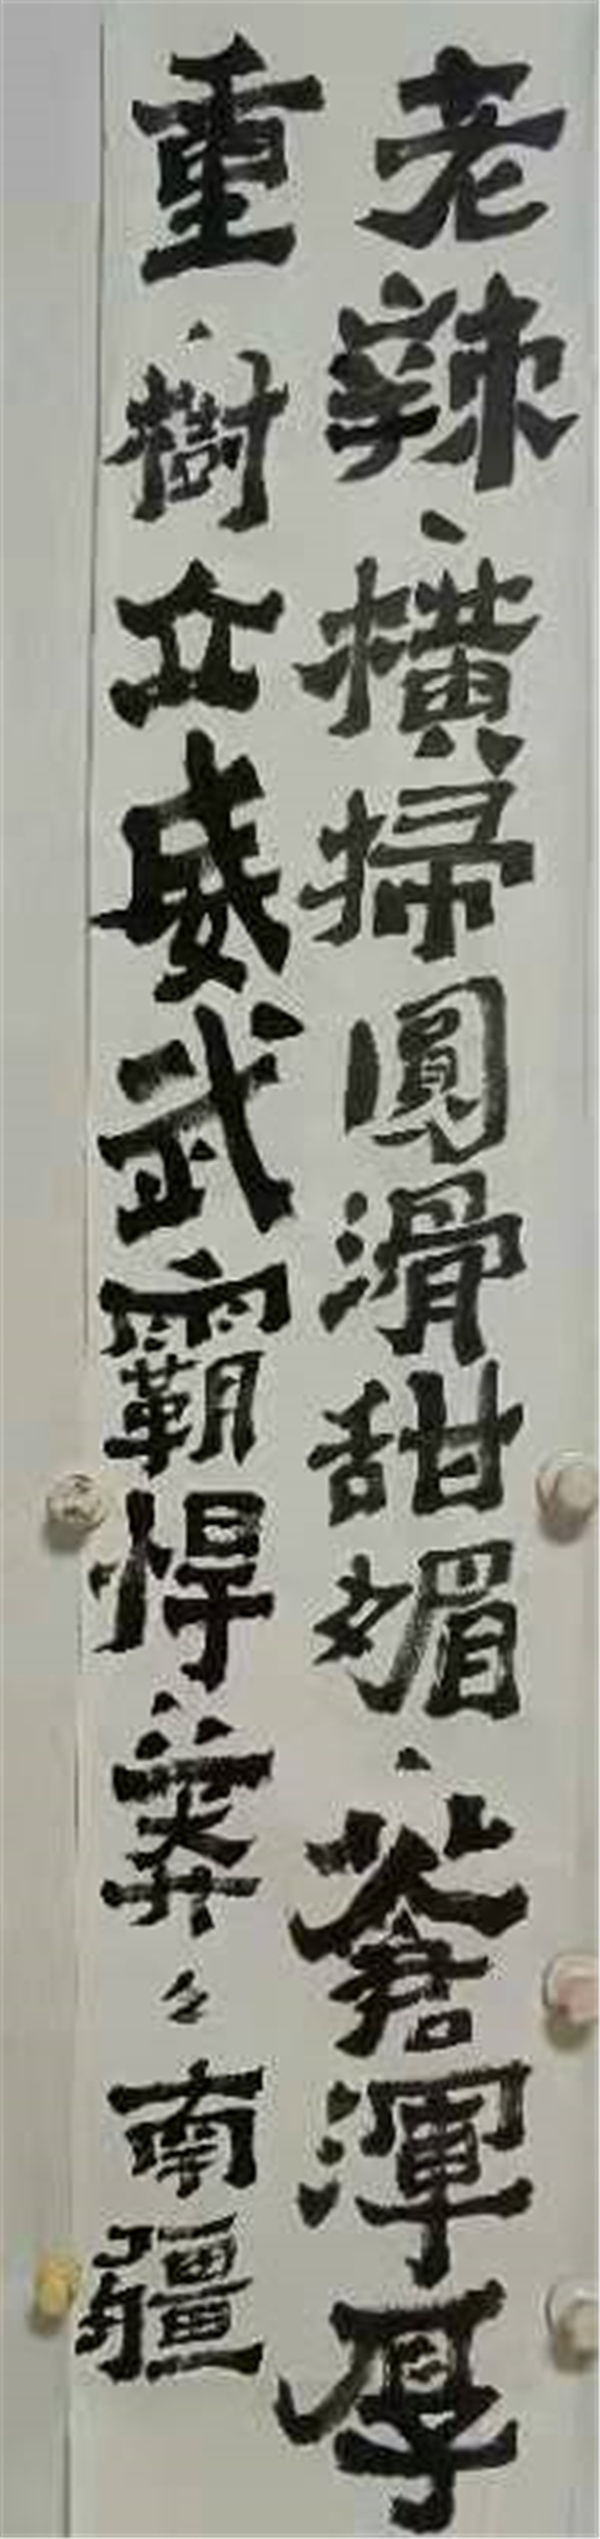 老辣、橫掃圓滑甜媚、蒼渾厚
重、樹立威武霸悍莽々南疆